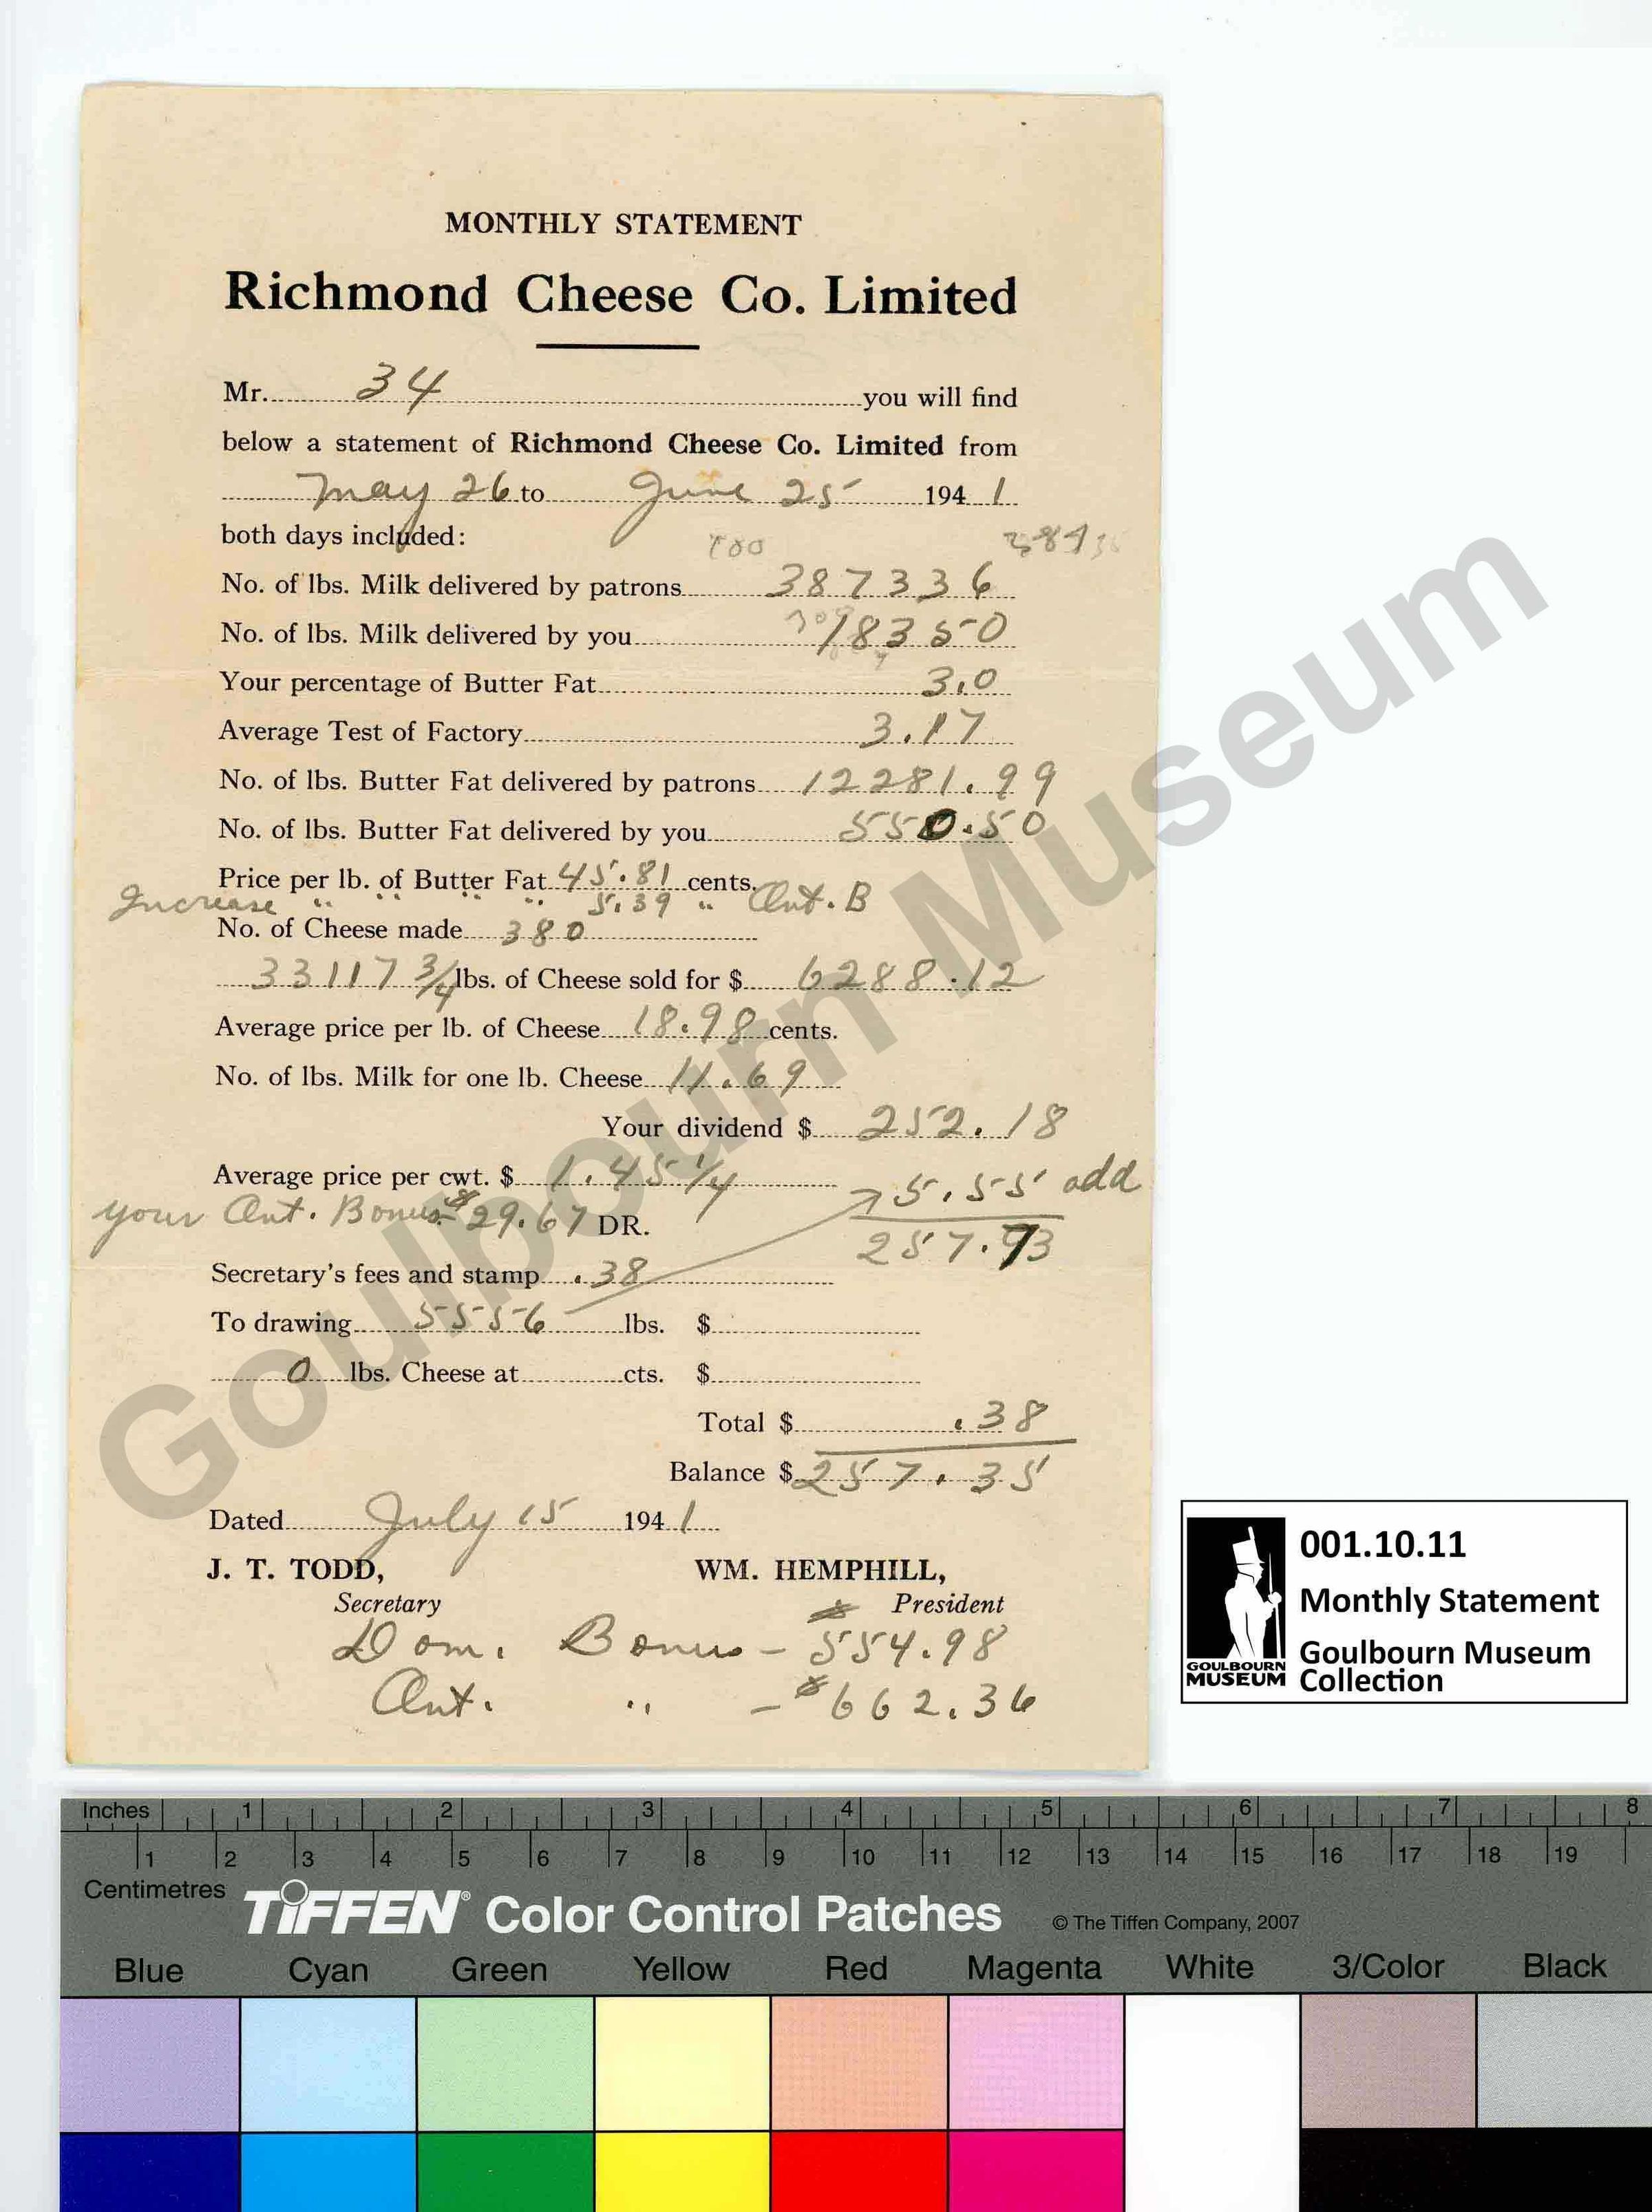 MONTHLY STATEMENT
Richmond Cheese Co. Limited
Mr. 34 you will find
below a statement of Richmond Cheese Co. Limited from
May 26 to June 25 1941
both days included:
No. of lbs. Milk delivered by patrons 387336
No. of lbs. Milk delivered by you 18350
Your percentage of Butter Fat 3.0
Average Test of Factory 3.17
No. of lbs. Butter Fat delivered by patrons 12281.99
No. of lbs. Butter Fat delivered by you 550.50
Price per lb. of Butter Fat 45.81 cents.
Increase " " " " 5.39 " Ont. B
No. of Cheese made 380
33117 3/4 lbs. of Cheese sold for $ 6288.12
Average price per lb. of Cheese 18.98 cents.
No. of lbs. Milk for one lb. Cheese 11.69
Your dividend $ 252.18
Average price per cwt. $ 1.45 1/4 5.55 add
your Ont. Bonus $29.67 DR. 257.73
Secretary's fees and stamp .38
To drawing 5556 lbs. $
0 lbs. Cheese at cts. $
Total $ .38
Balance $ 257.35
Dated July 15 1941
J. T. TODD, WM. HEMPHILL,
Secretary President
Dom. Bonus - $554.98
Ont. " - $662.36
Goulbourn Museum
001.10.11
Monthly Statement
Goulbourn Museum
Collection
GOULBOURN
MUSEUM
Inches 1 2 3 4 5 6 7 8
1 2 3 4 5 6 7 8 9 10 11 12 13 14 15 16 17 18 19
Centimetres
TIFFEN® Color Control Patches © The Tiffen Company, 2007
Blue Cyan Green Yellow Red Magenta White 3/Color Black